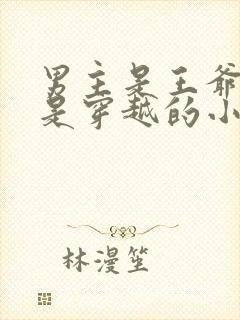 男主是王爷
是穿越的小
林漫笙